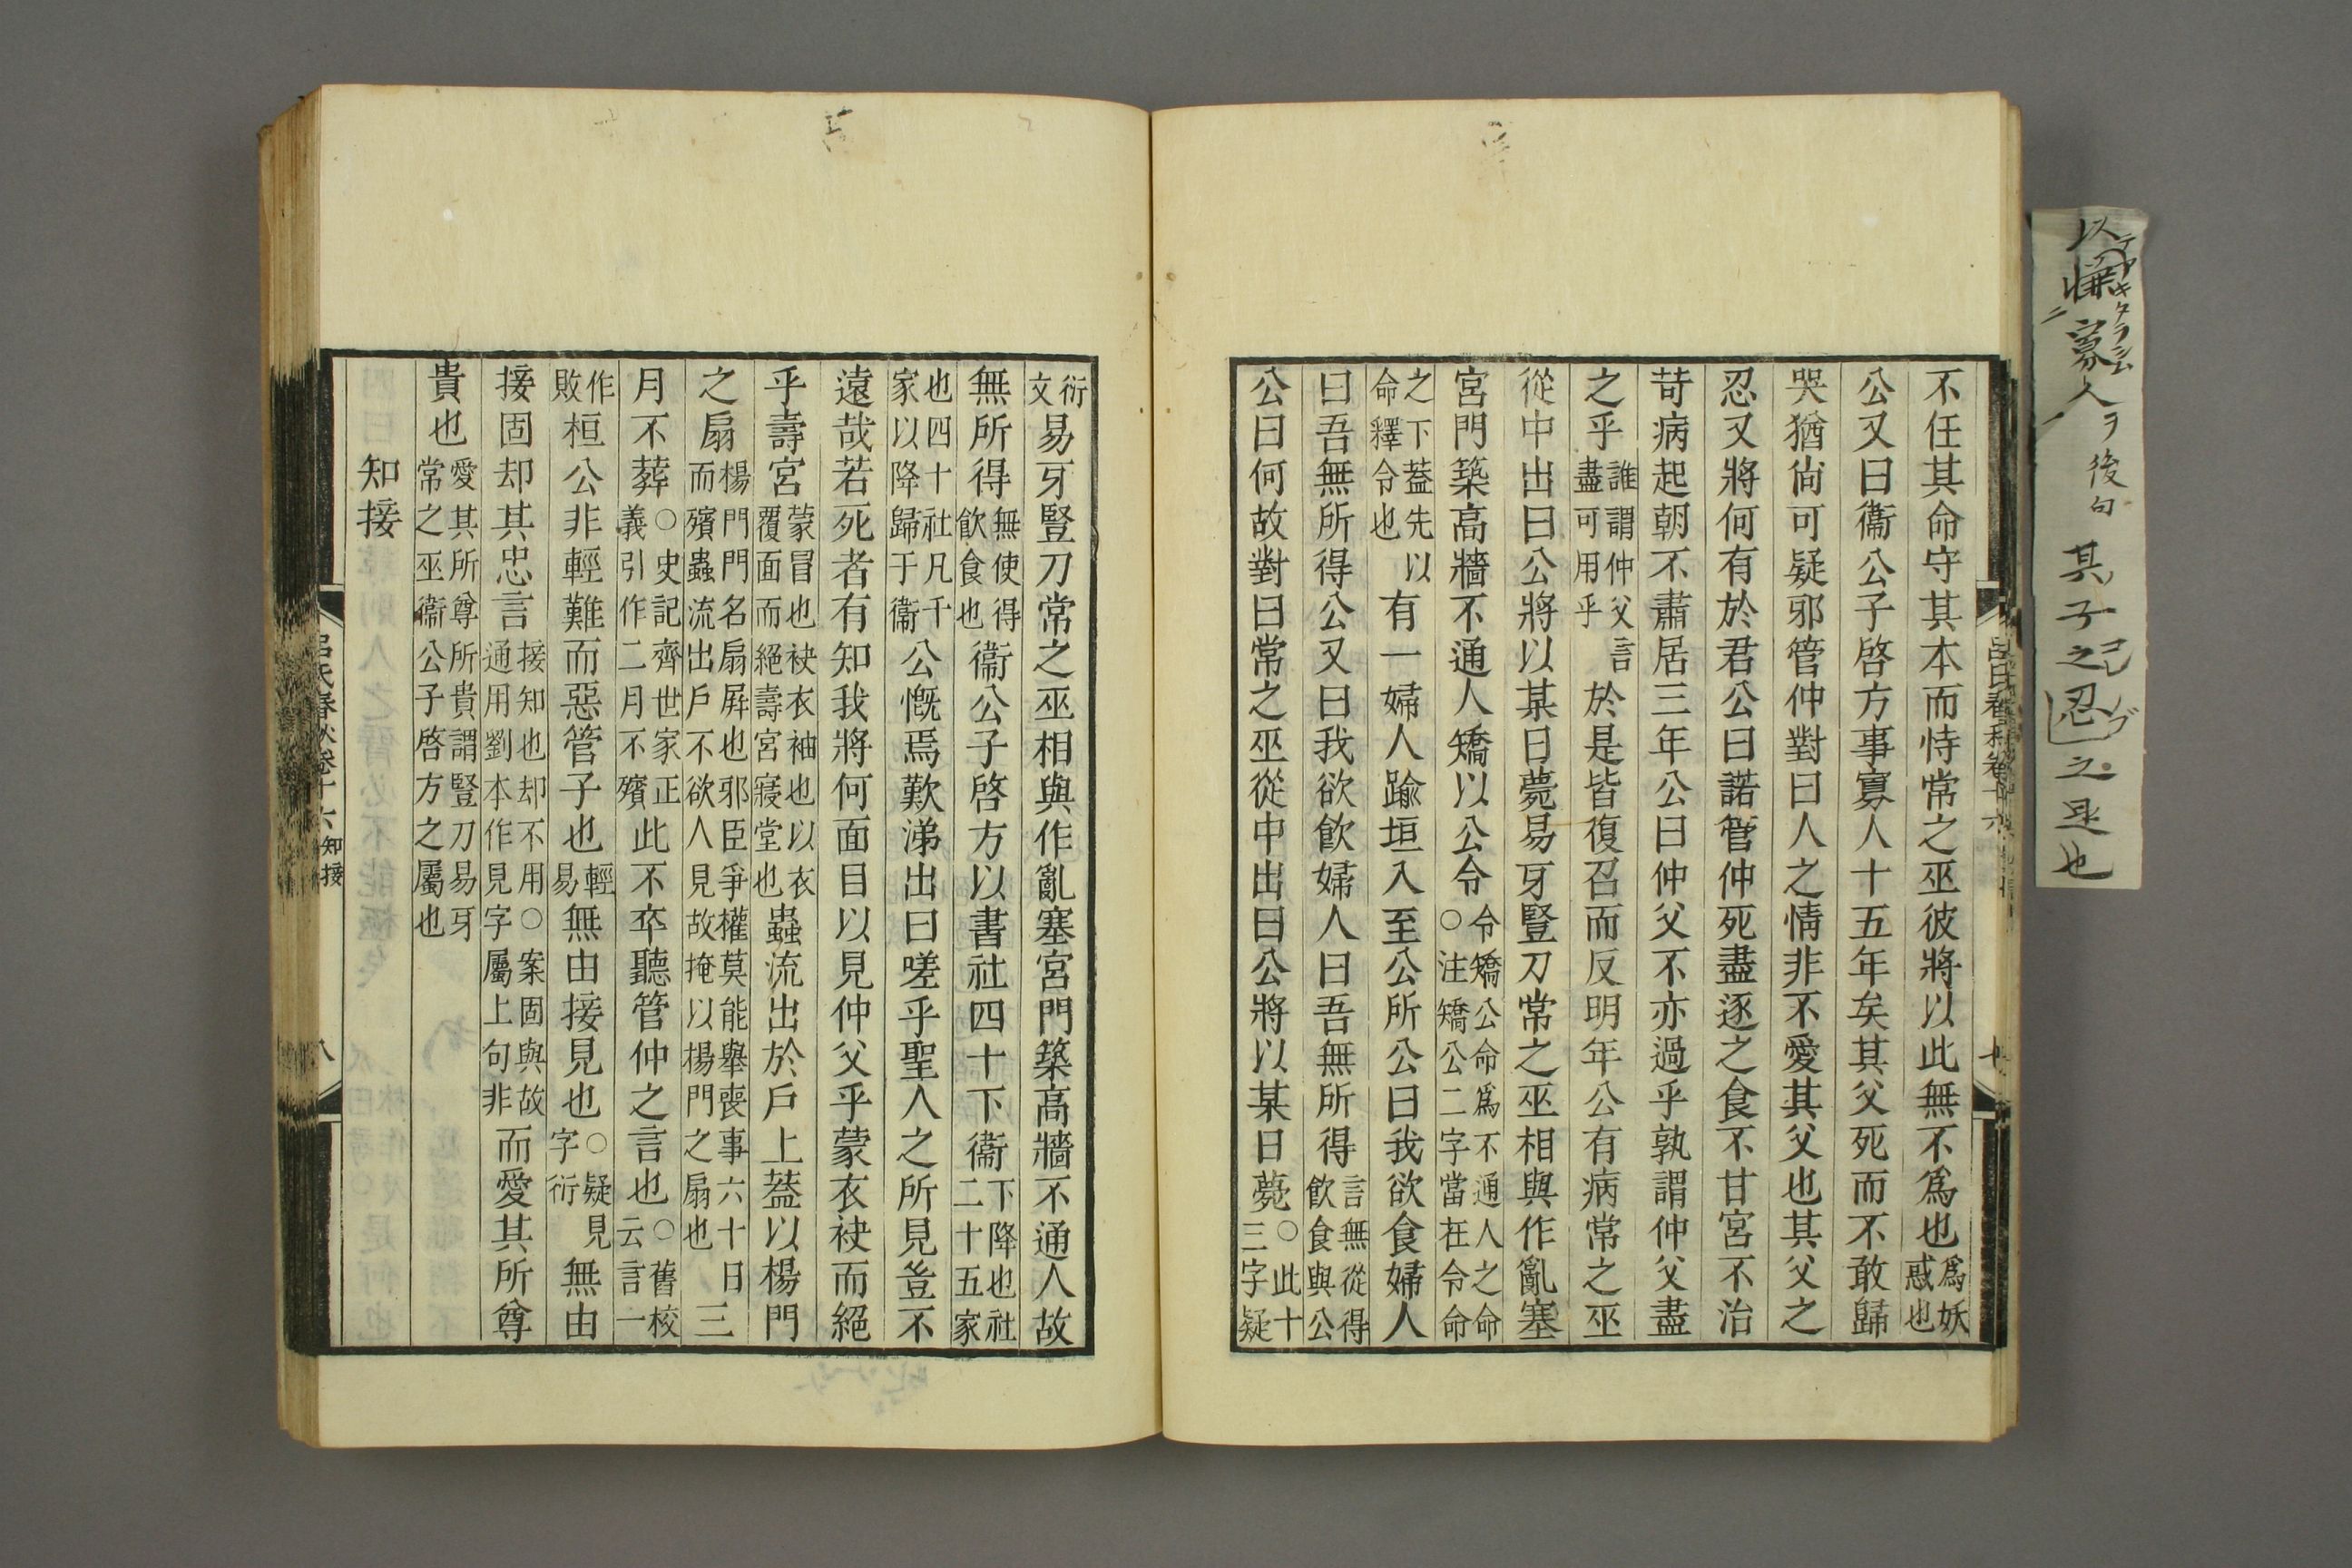 不任其命守其本而恃常之巫彼將以此無不爲也爲妖惑也
公又曰衞公子啓方事寡人十五年矣其父死而不敢歸
哭猶尙可疑邪管仲對曰人之情非不愛其父也其父之
忍又將何有於君公曰諾管仲死盡逐之食不甘宮不治
苛病起朝不肅居三年公曰仲父不亦過乎孰謂仲父盡
之乎誰謂仲父言盡可用乎於是皆復召而反明年公有病常之巫
從中出曰公將以某日薨易牙豎刀常之巫相與作亂塞
宮門築高牆不通人矯以公令令矯公命爲不通人之命○注矯公二字當在令命
之下葢先以命釋令也有一婦人踰垣入至公所公曰我欲食婦人
曰吾無所得公又曰我欲飮婦人曰吾無所得言無從得飮食與公
公曰何故對曰常之巫從中出曰公將以某日薨○此十三字疑
衍文易牙豎刀常之巫相與作亂塞宮門築高牆不通人故
無所得無使得飮食也衞公子啓方以書社四十下衞下降也社二十五家
也四十社凡千家以降歸于衞公慨焉歎涕出曰嗟乎聖人之所見豈不
遠哉若死者有知我將何面目以見仲父乎蒙衣袂而絕
乎壽宮蒙冒也袂衣袖也以衣覆面而絕壽宮寢堂也蟲流出於戶上葢以楊門
之扇楊門門名扇屛也邪臣爭權莫能舉喪事六十日而殯蟲流出戶不欲人見故掩以楊門之扇也三
月不葬○史記齊世家正義引作二月不殯此不卒聽管仲之言也○舊校云言一
作敗桓公非輕難而惡管子也輕易無由接見也○疑見字衍無由
接固却其忠言接知也却不用○案固與故通用劉本作見字屬上句非而愛其所尊
貴也愛其所尊所貴謂豎刀易牙常之巫衞公子啓方之屬也
知接
呂氏春秋卷十六 知接
八
呂氏春秋卷十六
七
寡人ヲ後句
其子之忍之是也